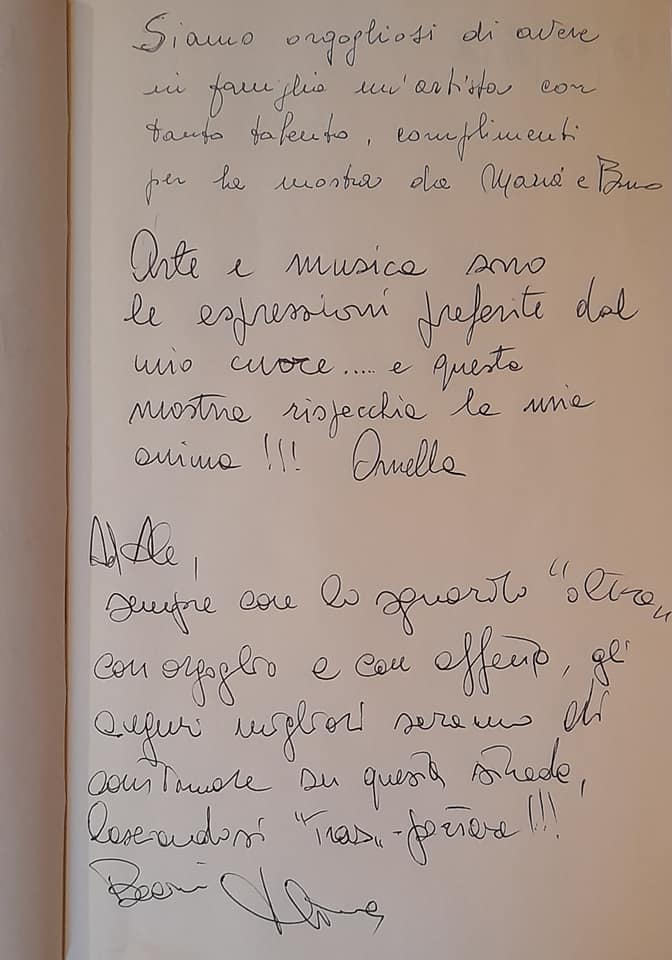 Siamo orgogliosi di avere
in famiglia un'artista con
tanto talento, complimenti
per la mostra da Maria e Bruno
Arte e musica sono
le espressioni preferite dal
mio cuore..... e questa
mostra rispecchia la mia
anima !!! Ornella
Ad Ale,
sempre con lo sguardo "oltre"
con orgoglio e con affetto, gli
auguri migliori saranno di
continuare su questa strada,
lasciandosi "Tras"-portare!!!